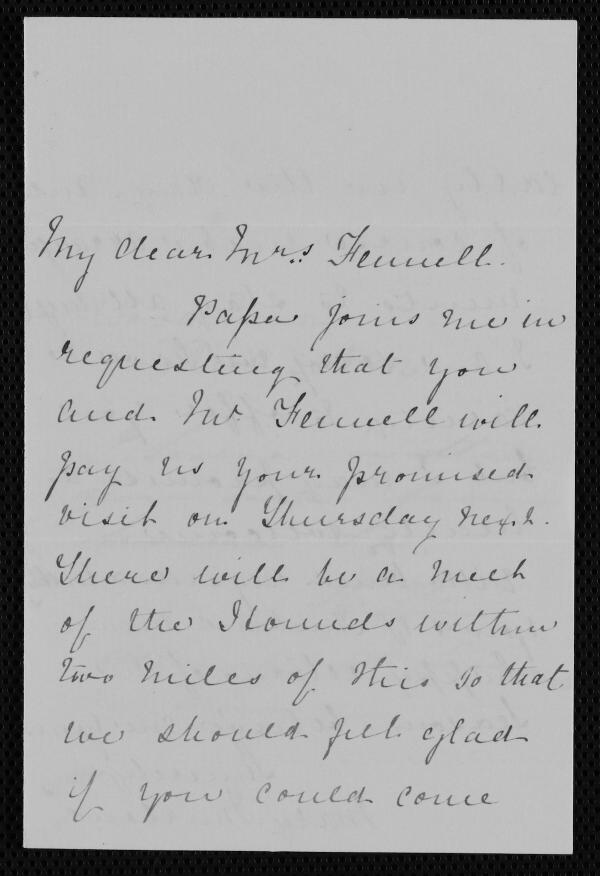 My dear Mrs. Fennell.
Papa joins me in
requesting that you
and Mr. Fennell will
pay us your promised
visit on Thursday next.
There will be a meet
of the Hounds within
two miles of this so that
we should feel glad
if you could come